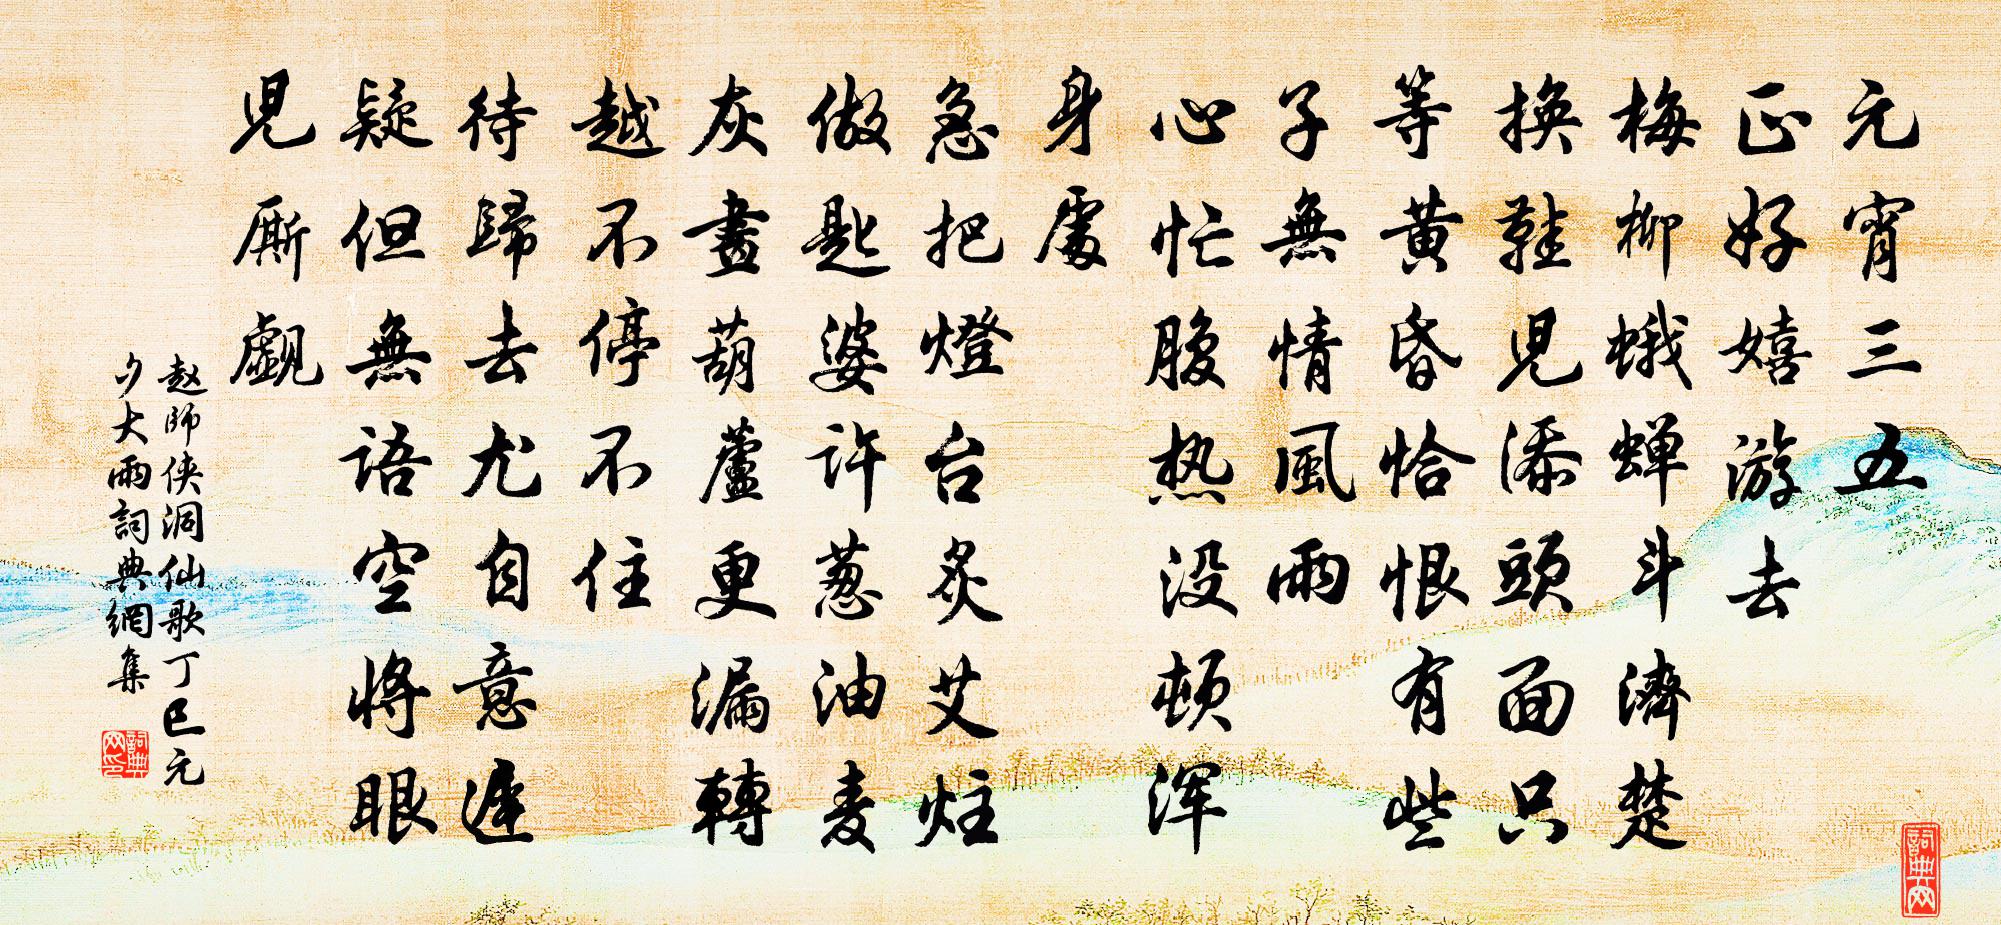 元宵三五
正好嬉游去
梅柳蛾蝉斗濟楚
換鞋兒添頭面只
等黄昏恰恨有些
子無情風雨
心忙腹热没頓浑
身處
急把燈台炙艾炷
做匙婆许葱油麦
灰畫葫蘆更漏轉
越不停不住
待歸去尤自意遲
疑但無語空將眼
兒厮觑
赵師侠洞仙歌丁巳元
夕大雨詞典網集
詞典网印
詞典网